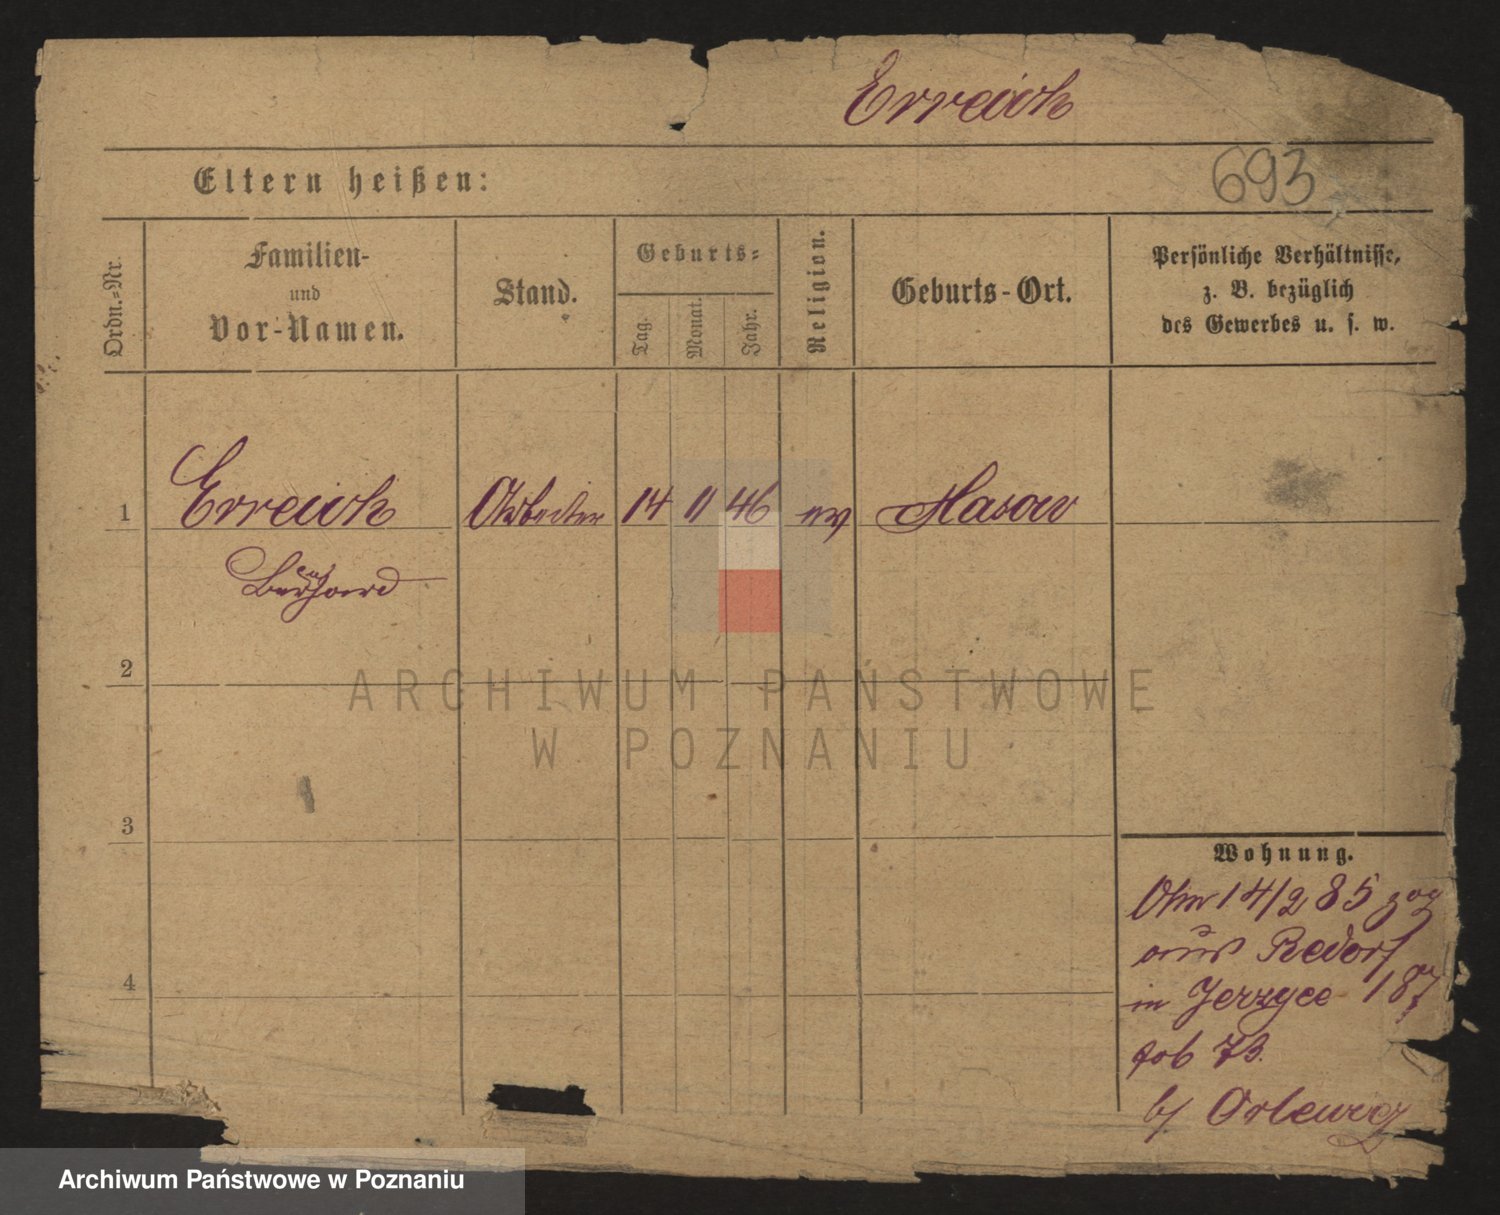 Erreich
693
Eltern heißen:
Ordn.=Nr.
Familien-
und
Vor-Namen.
Stand.
Geburts=
Tag.
Monat.
Jahr.
Religion.
Geburts-Ort.
Persönliche Verhältnisse,
z. B. bezüglich
des Gewerbes u. s. w.
1 Erreich Arbeiter 14 11 46 ev Hasow
2
3
4
Wohnung.
Am 14/2 85 zog
aus
in Jerzyce 187
73.
b/
ARCHIWUM PAŃSTWOWE
W POZNANIU
Archiwum Państwowe w Poznaniu